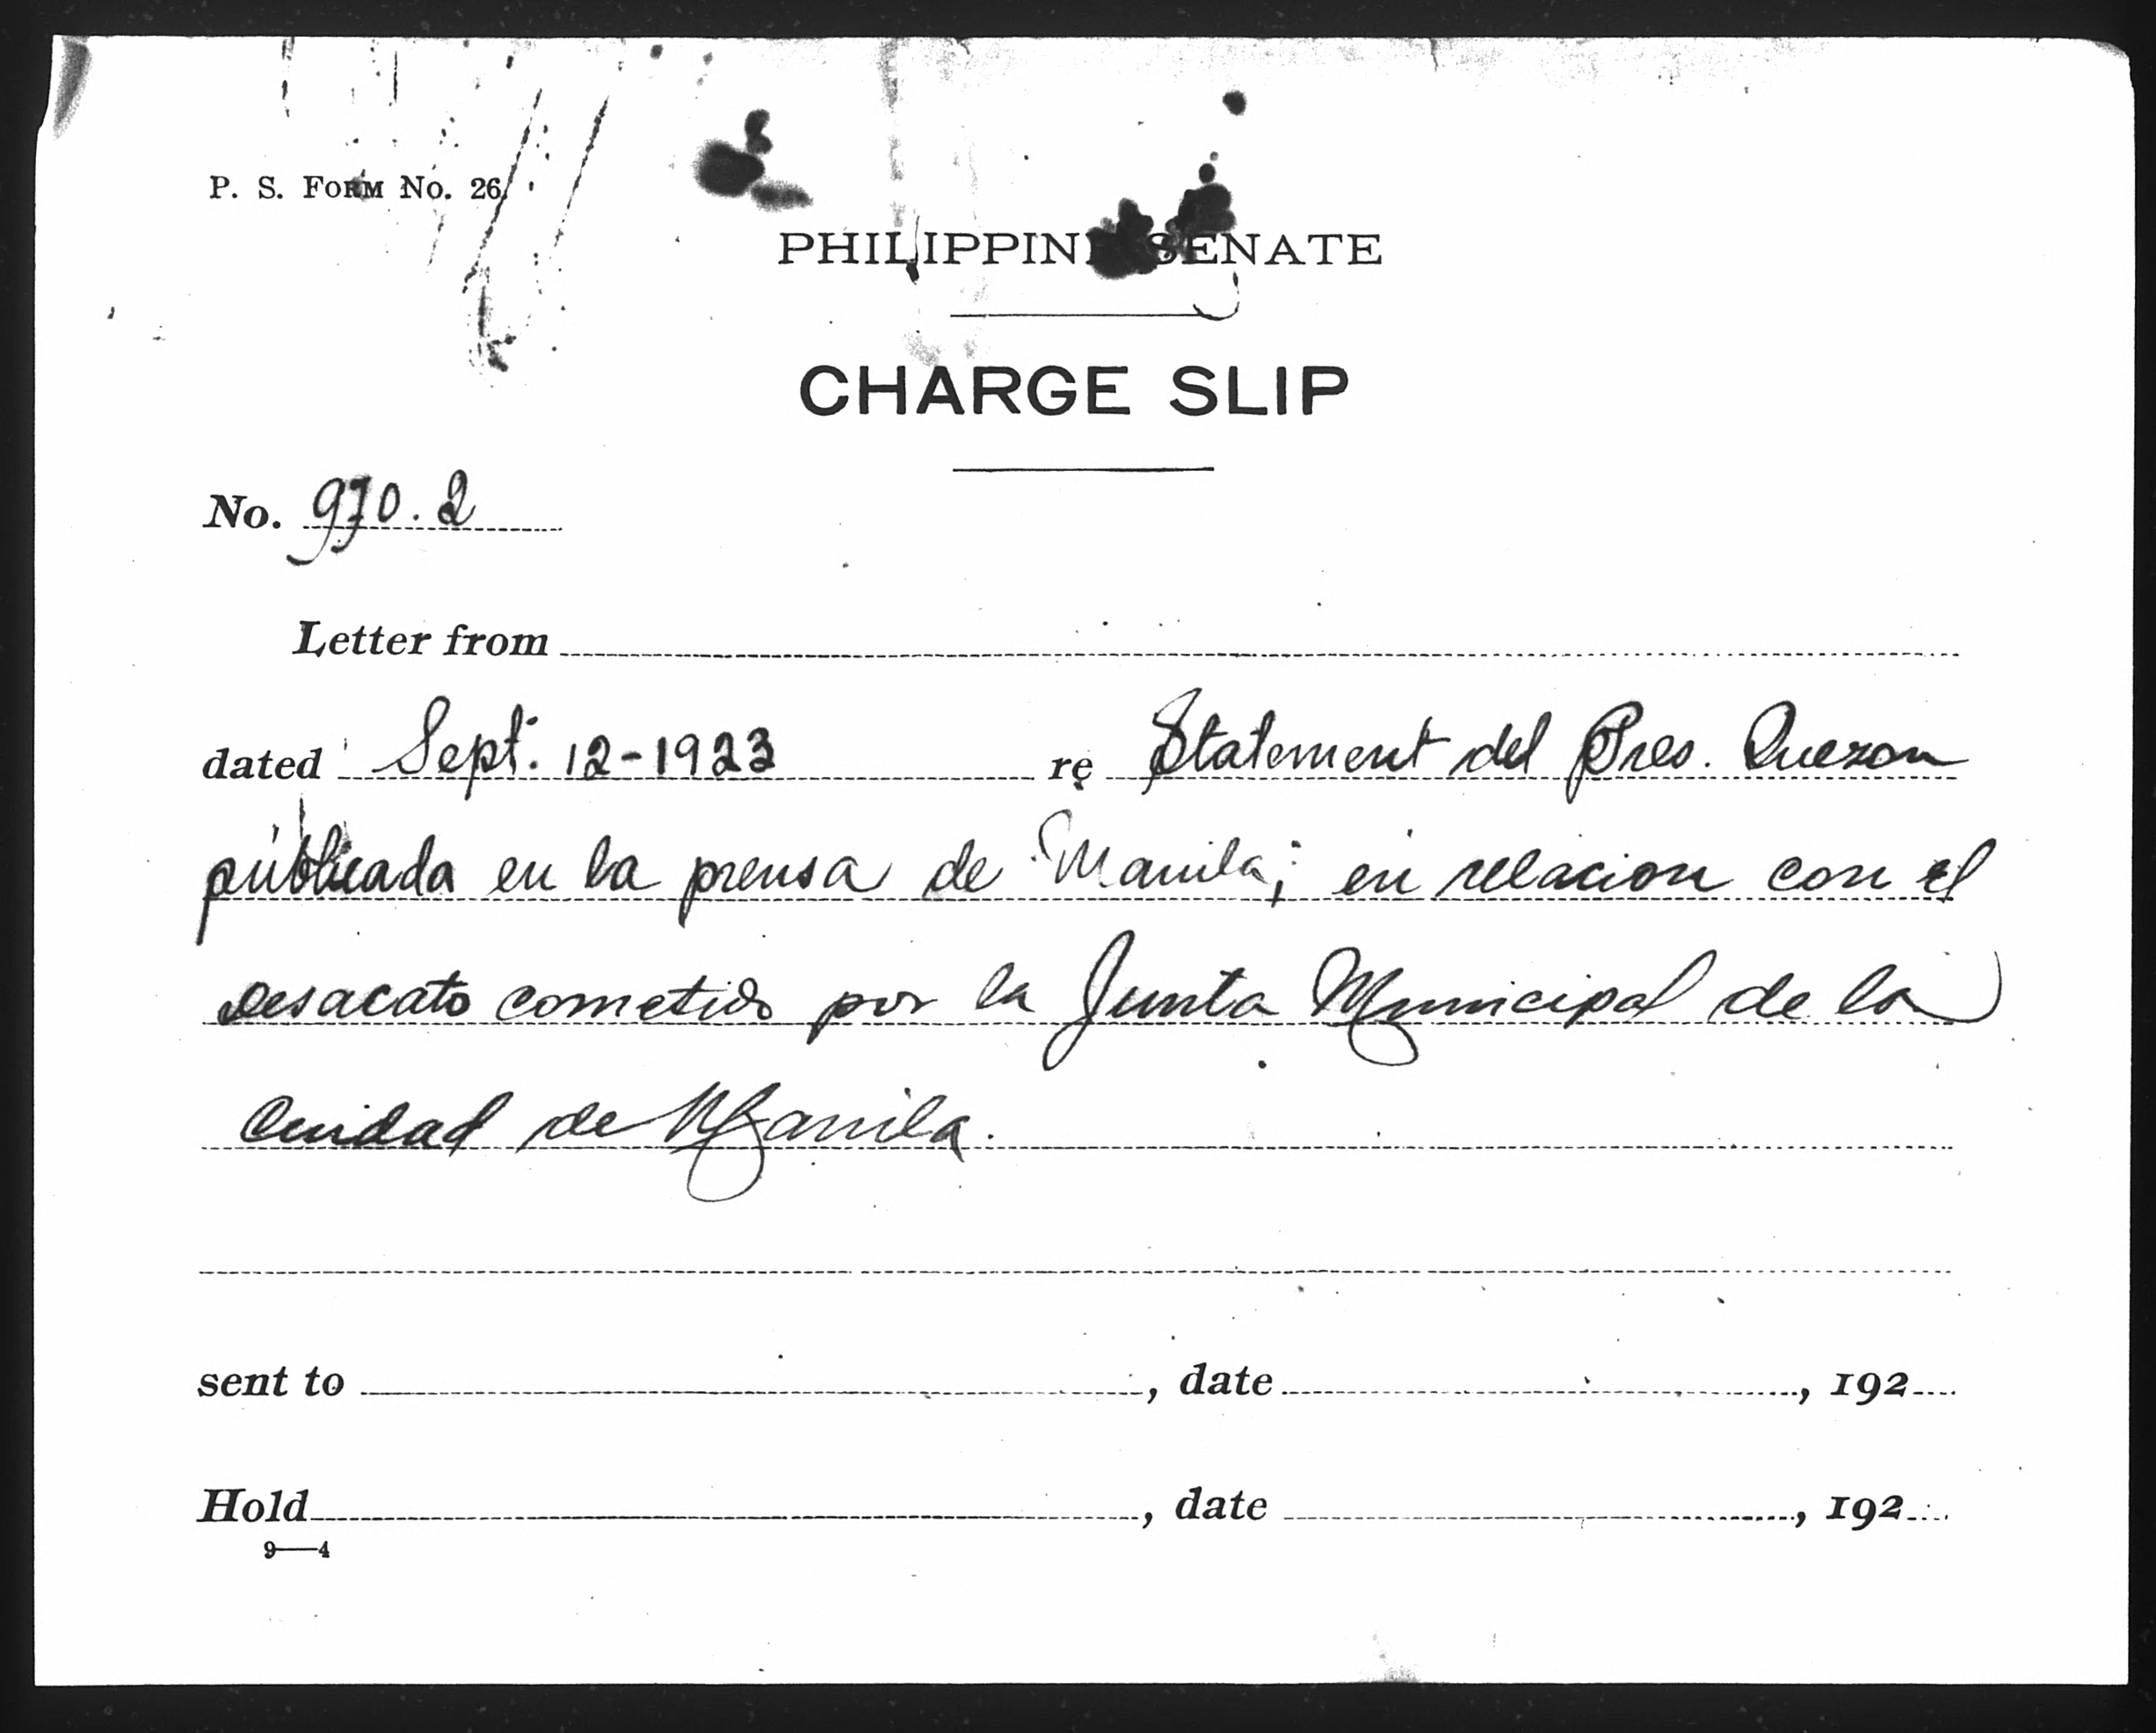 P. S. FORM No. 26
PHILIPPINE SENATE
CHARGE SLIP
No. 970.2
Letter from
dated Sept. 12-1923 re Statement del Pres. Quezon
públicada en la prensa de Manila; en relacion con el
desacato cometido por la Junta Municipal de la
Ciudad de Manila.
sent to , date , 192
Hold , date , 192
9—4